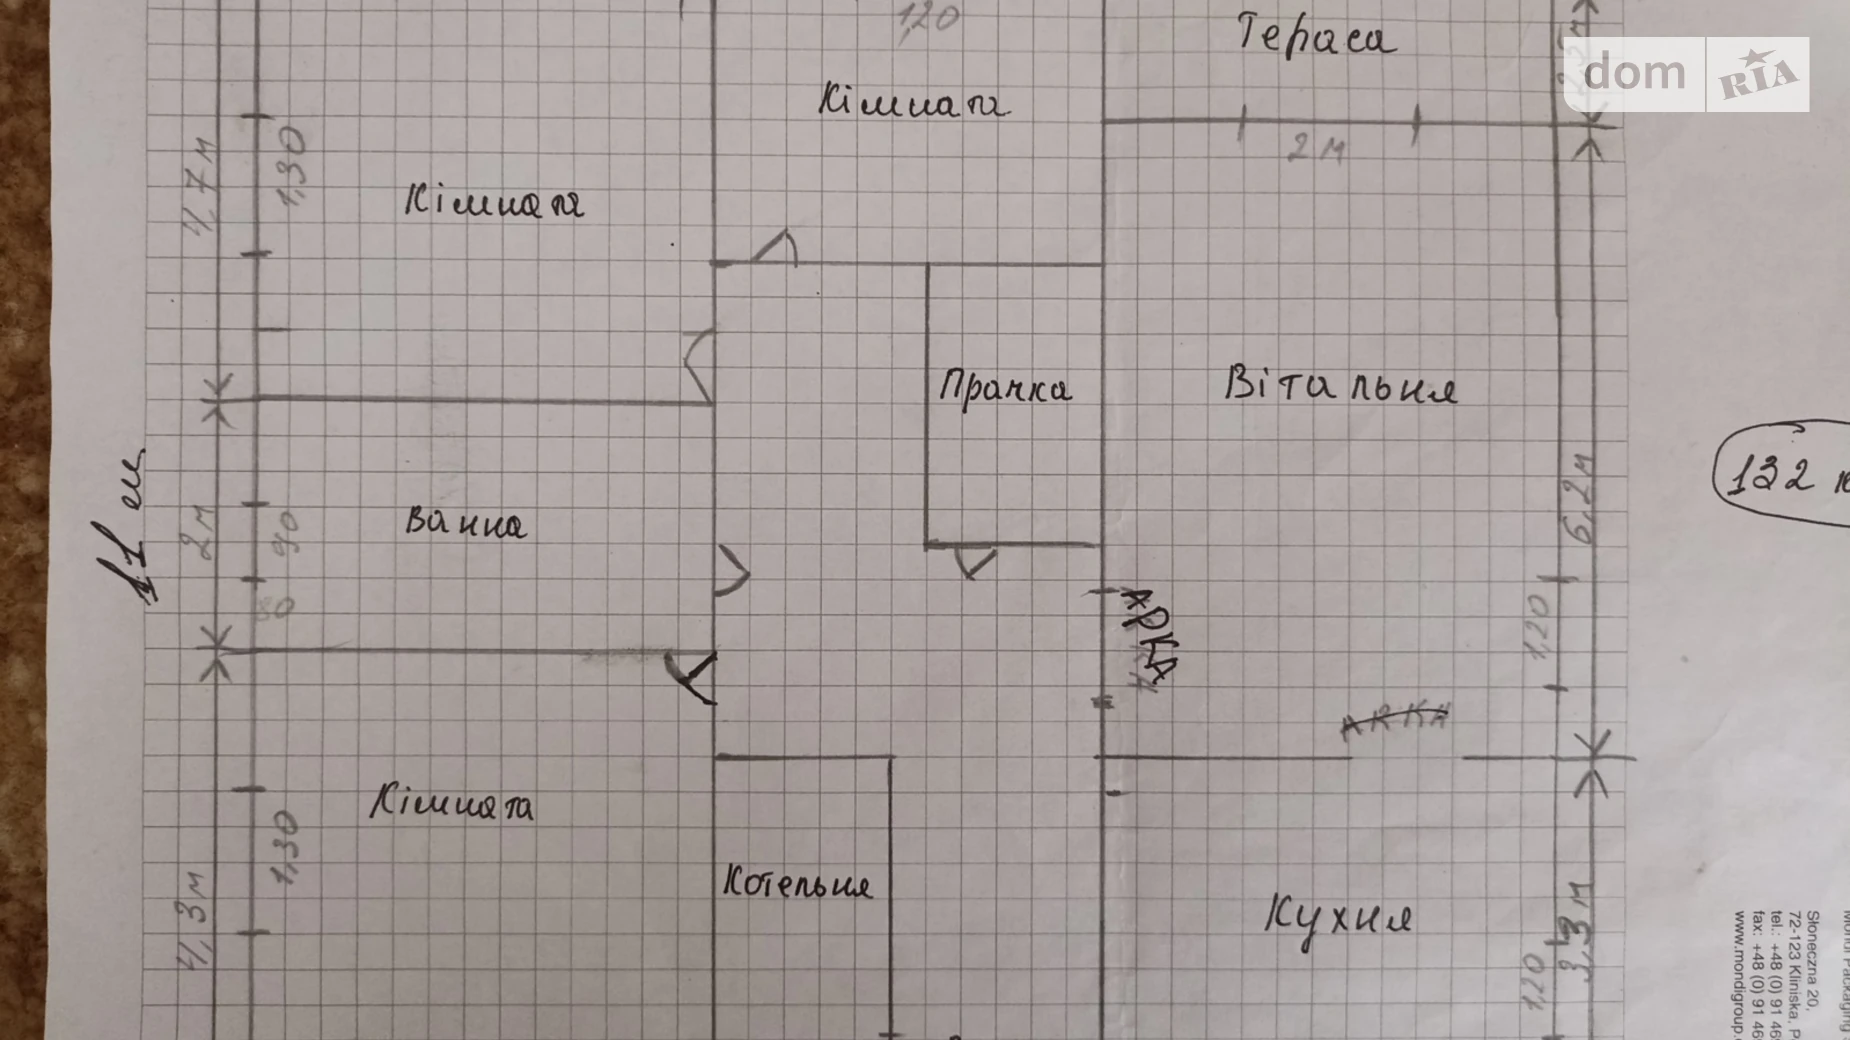 1,20
Тераса
dom RIA
Кімната
2 м
4,7 м
1,30
Кімната
Прачка
Вітальня
132
6,2 м
11 см
2 м
90
Ванна
АРКА
1,20
АРКА
Кімната
1,30
4,3 м
Котельня
Кухня
3,3 м
1,20
Słoneczna 20,
72-123 Kliniska, P
tel.: +48 (0) 91 46
fax: +48 (0) 91 46
www.mondigroup.